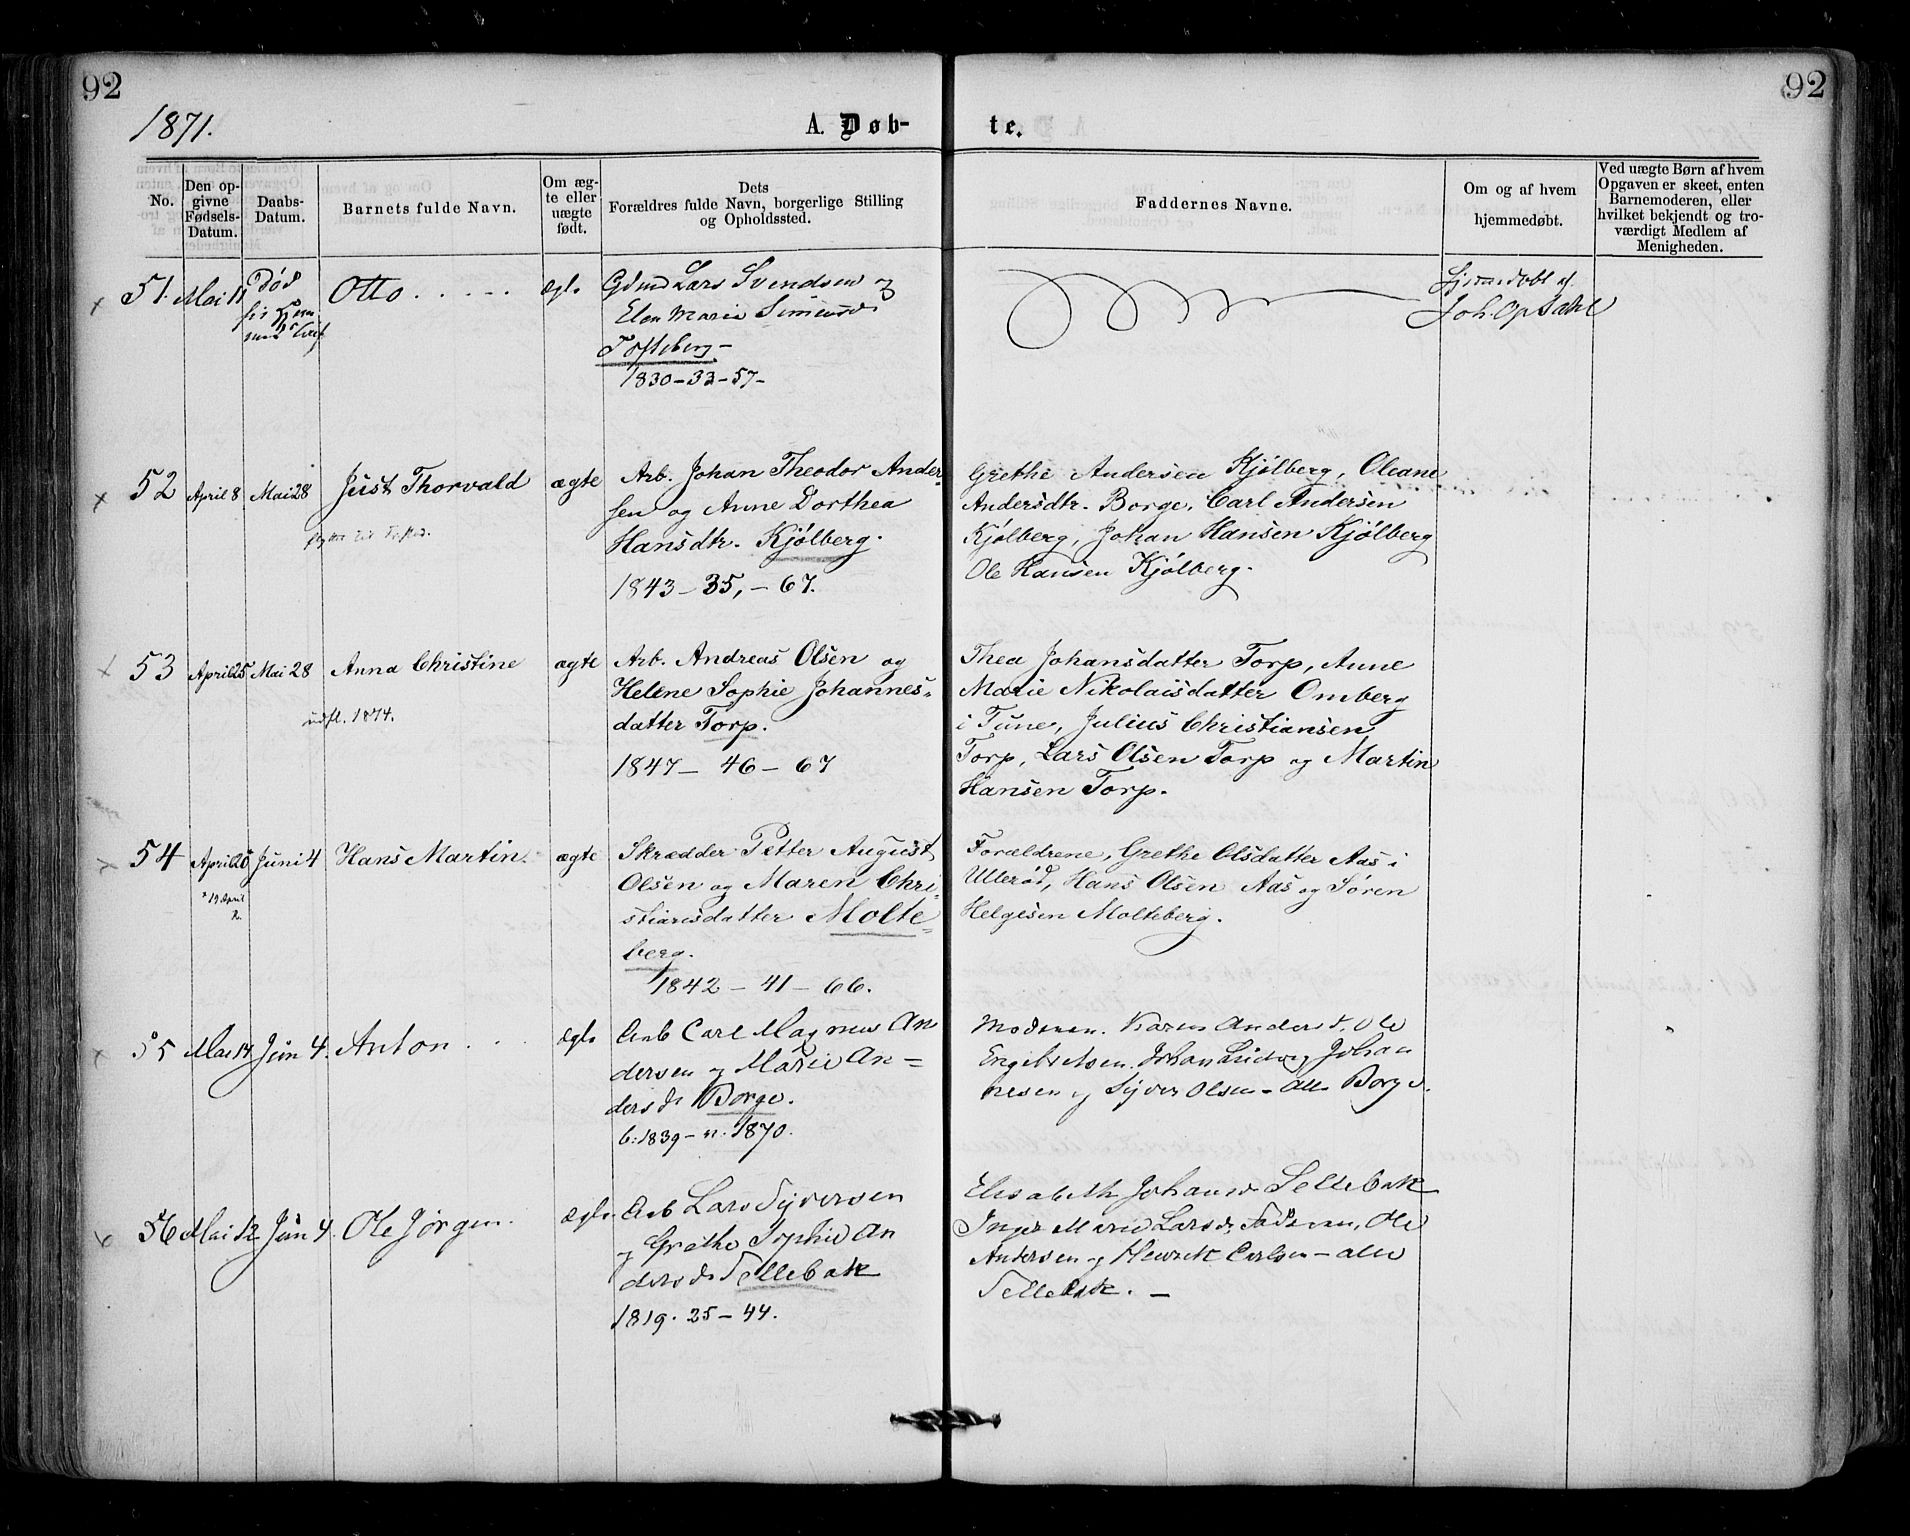 92
92
1871.
A. Døb-
te.
No.
Den op-
givne
Fødsels-
Datum.
Daabs-
Datum.
Barnets fulde Navn.
Om æg-
te eller
uægte
født.
Dets
Forældres fulde Navn, borgerlige Stilling
og Opholdssted.
Faddernes Navne.
Om og af hvem
hjemmedøbt.
Ved uægte Børn af hvem
Opgaven er skeet, enten
Barnemoderen, eller
hvilket bekjendt og tro-
værdigt Medlem af
Menigheden.
51. Mai 11 Død
Otto
Lars Svendsen og
Elen Marie
1830-33-57-
Hjemmedøbt af
Joh. Opdahl
52 April 8 Mai 28 Just Thorvald ægte
Arb. Johan Theodor Ander-
sen og Anne Dorthea
Hansdtr. Kjølberg.
1843-35,-67.
Grethe Andersen Kjølberg, Oleane
Andersdtr. Borge, Carl Andersen
Kjølberg, Johan Hansen Kjølberg
Ole Hansen Kjølberg.
53 April 25 Mai 28 Anna Christine ægte
udfl. 1874.
Arb. Andreas Olsen og
Helene Sophie Johannes-
datter Torp.
1847-46-67
Thea Johansdatter Torp, Anne
Marie Nikolaisdatter Omberg
i Tune, Julius Christiansen
Torp, Lars Olsen Torp og Martin
Hansen Torp.
54 April Juni 4 Hans Martin. ægte
19 April
Skrædder Petter August
Olsen og Maren Chri-
stiansdatter Molte-
berg.
1842-41-66.
Forældrene, Grethe Olsdatter Aas i
Ullerød, Hans Olsen Aas og Søren
Helgesen Molteberg.
55 Mai 14 Jun 4. Anton ægte
Arb Carl Magnus An
dersen og Marie An-
dersdr Borge.
b: 1839-n: 1870.
Moderen. Karen Andersd. Ole
Engebretsen. Johan Ludvig Johan
nesen og Syver Olsen - alle Borge.
56 Mai 12 Jun 4. Ole Jørgen. ægte
Arb Lars Syversen
og Grethe Sophie An
dersdr Sellebak
1819. 25-44.
Elisabeth Sellebak
Inger Marie Larsdr Ole
Andersen og Henrik Carlsen - alle
Sellebak. -